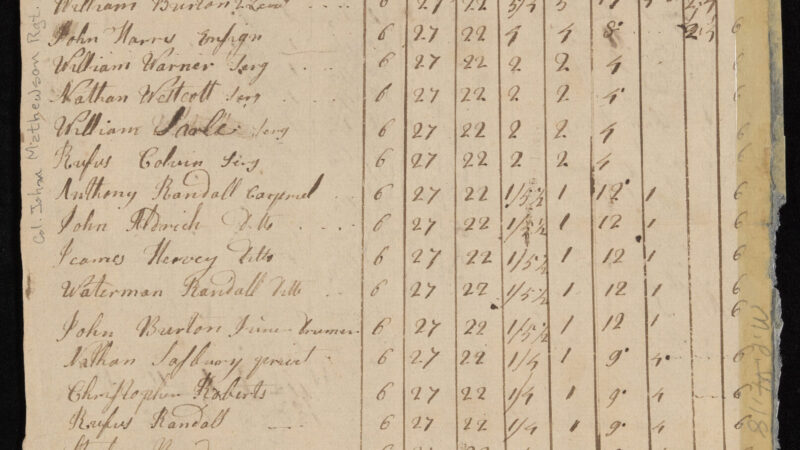 William Burton 6 27 22 5/4 5
John Harris Ensign 6 27 22 4 4 8
William Warner Serg 6 27 22 2 2 4
Nathan Westcott Serg 6 27 22 2 2 4
William Searle Serg 6 27 22 2 2 4
Rufus Colvin Serg 6 27 22 2 2 4
Anthony Randall Corperel 6 27 22 1/5½ 1 12 1 6
John Aldrich Ditto 6 27 22 1/5½ 1 12 1 6
Jeames Hervey Ditto 6 27 22 1/5½ 1 12 1 6
Waterman Randall Ditto 6 27 22 1/5½ 1 12 1 6
John Burton Drumer 6 27 22 1/5½ 1 12 1 6
Nathan Salsbury 6 27 22 1/4 1 9 4 6
Christopher Roberts 6 27 22 1/4 1 9 4 6
Rufus Randall 6 27 22 1/4 1 9 4 6
Col. John Mathewson Rgt.